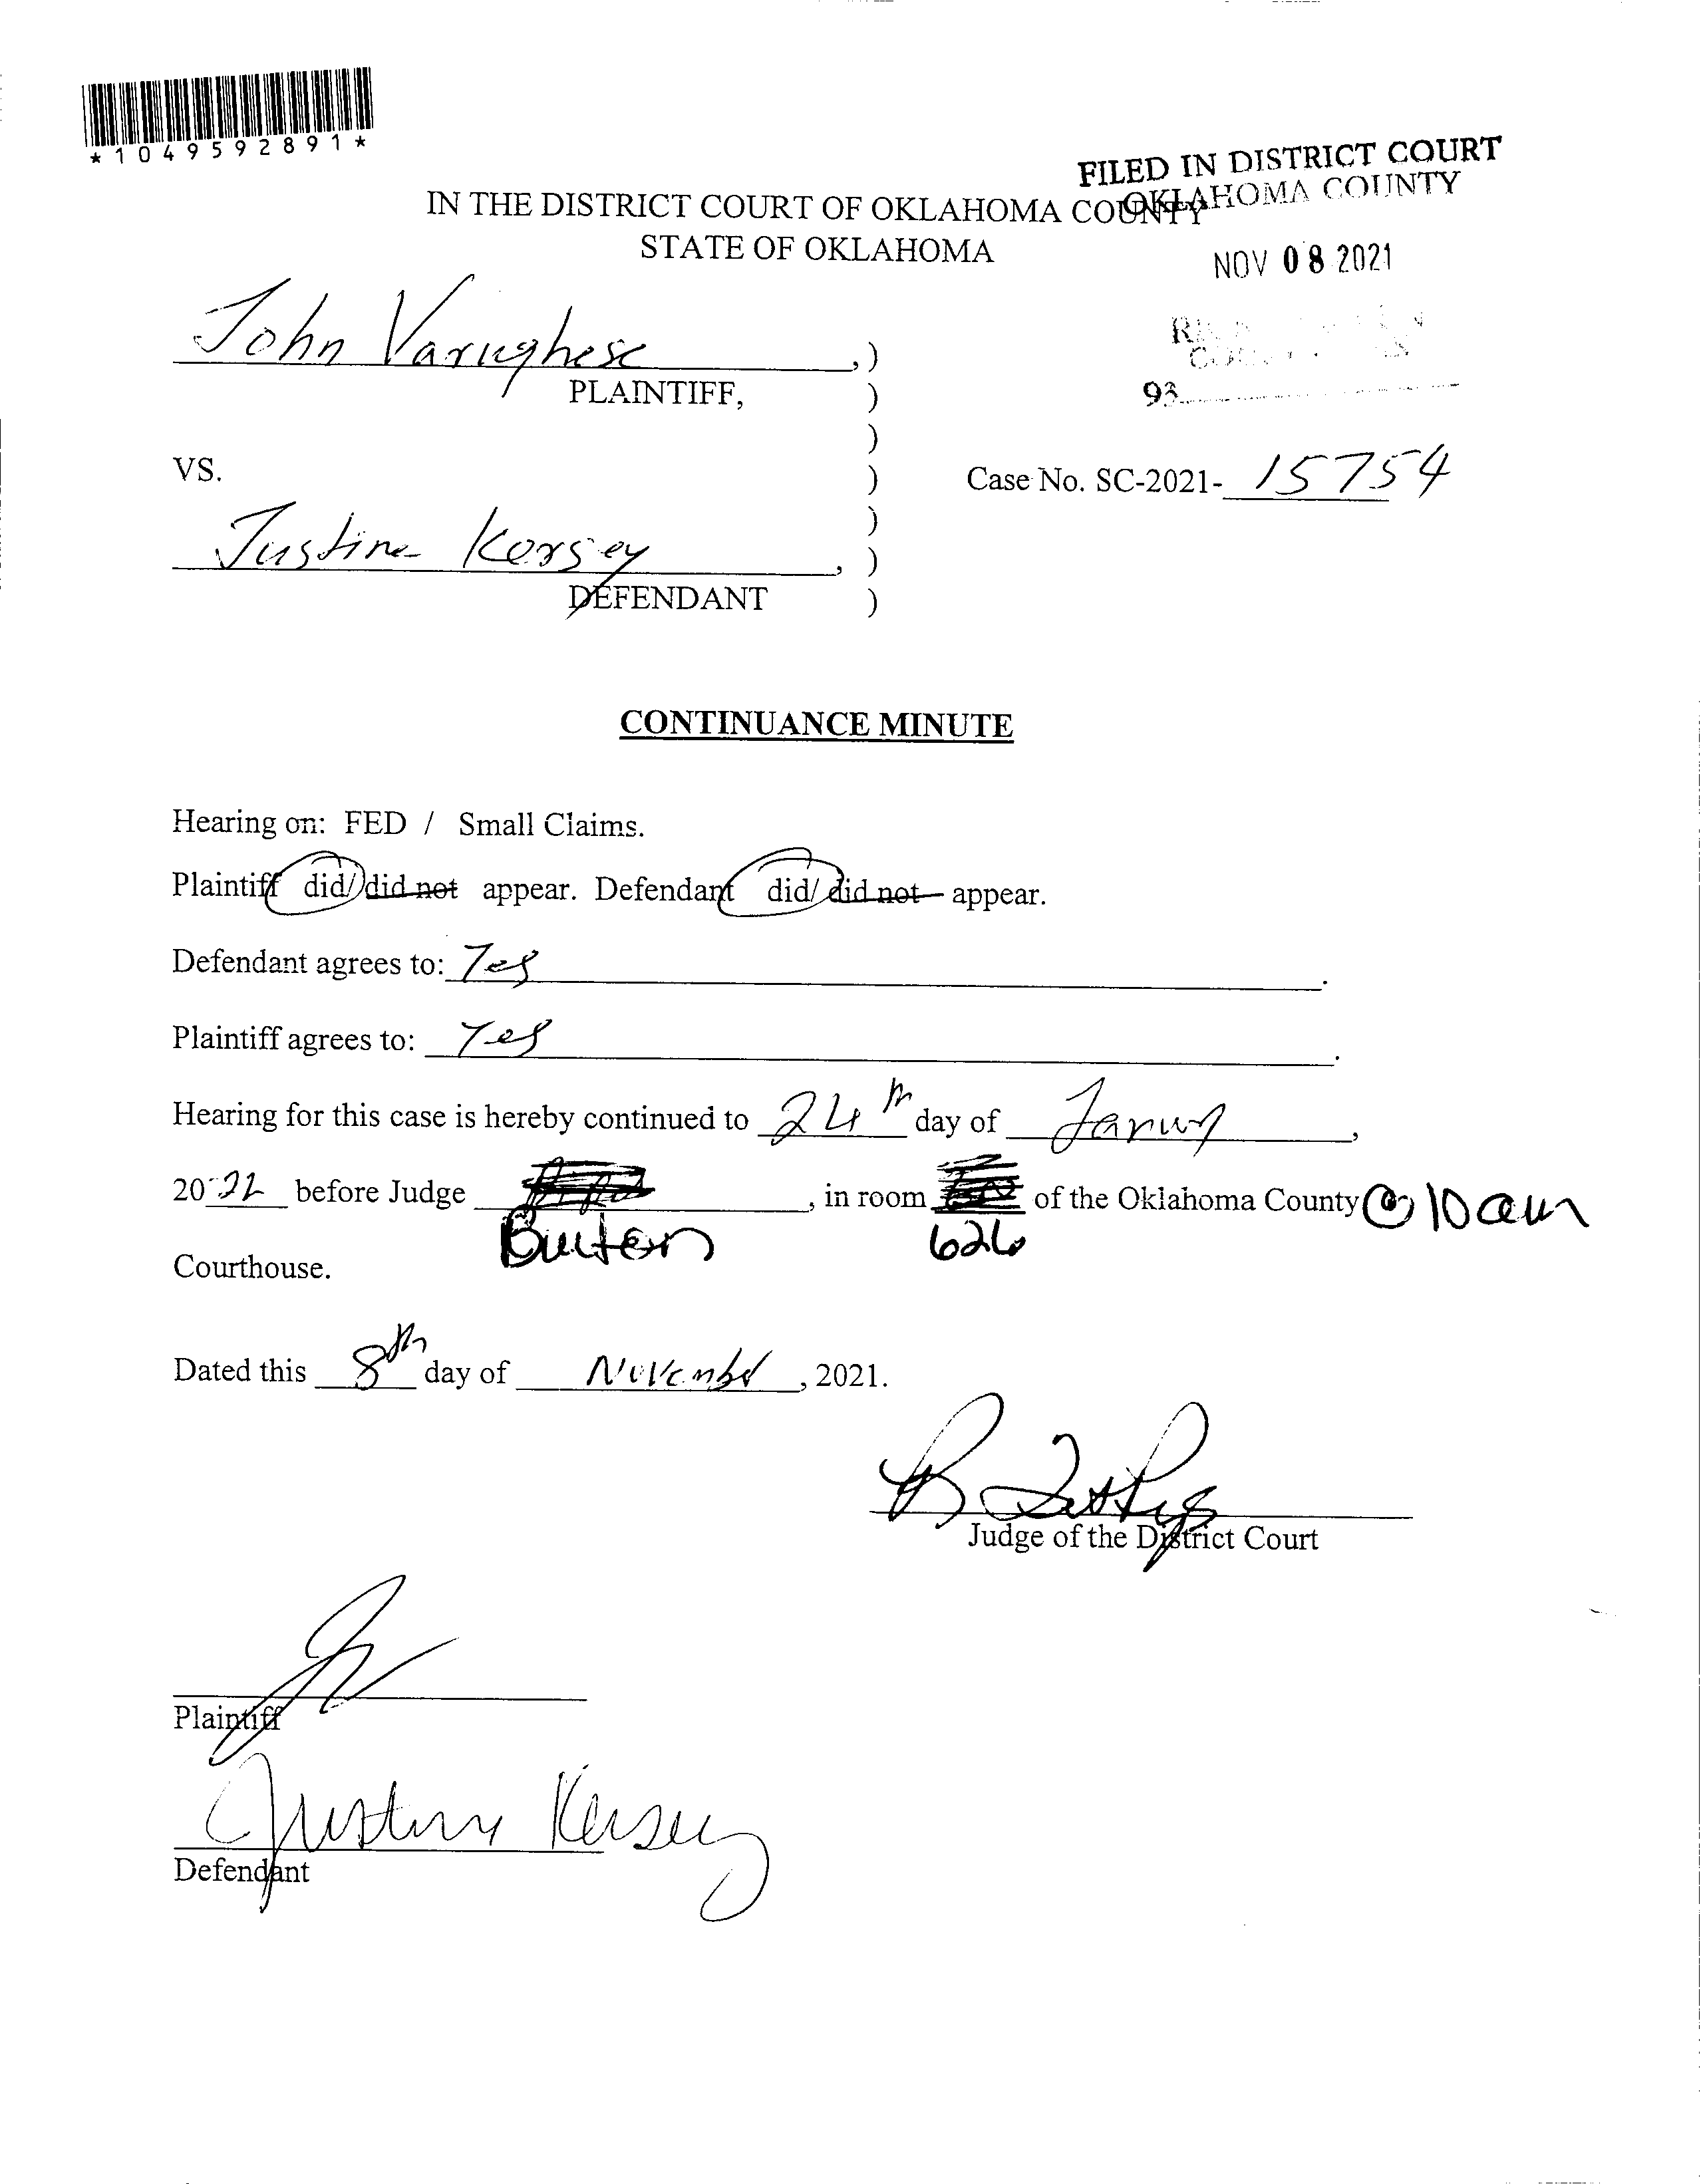 *1049592891*
FILED IN DISTRICT COURT
OKLAHOMA COUNTY
IN THE DISTRICT COURT OF OKLAHOMA COUNTY
STATE OF OKLAHOMA
NOV 08 2021
John Varughese ,)
PLAINTIFF, )
93
)
VS. )
Case No. SC-2021- 15754
)
Justine Kersey , )
DEFENDANT )
CONTINUANCE MINUTE
Hearing on: FED / Small Claims.
Plaintiff did/did not appear. Defendant did/did not appear.
Defendant agrees to: Yes .
Plaintiff agrees to: Yes .
Hearing for this case is hereby continued to 24th day of ,
2022 before Judge , in room of the Oklahoma County @ 10am
626
Courthouse.
Dated this 8th day of , 2021.
Judge of the District Court
Plaintiff
Justine Kersey
Defendant